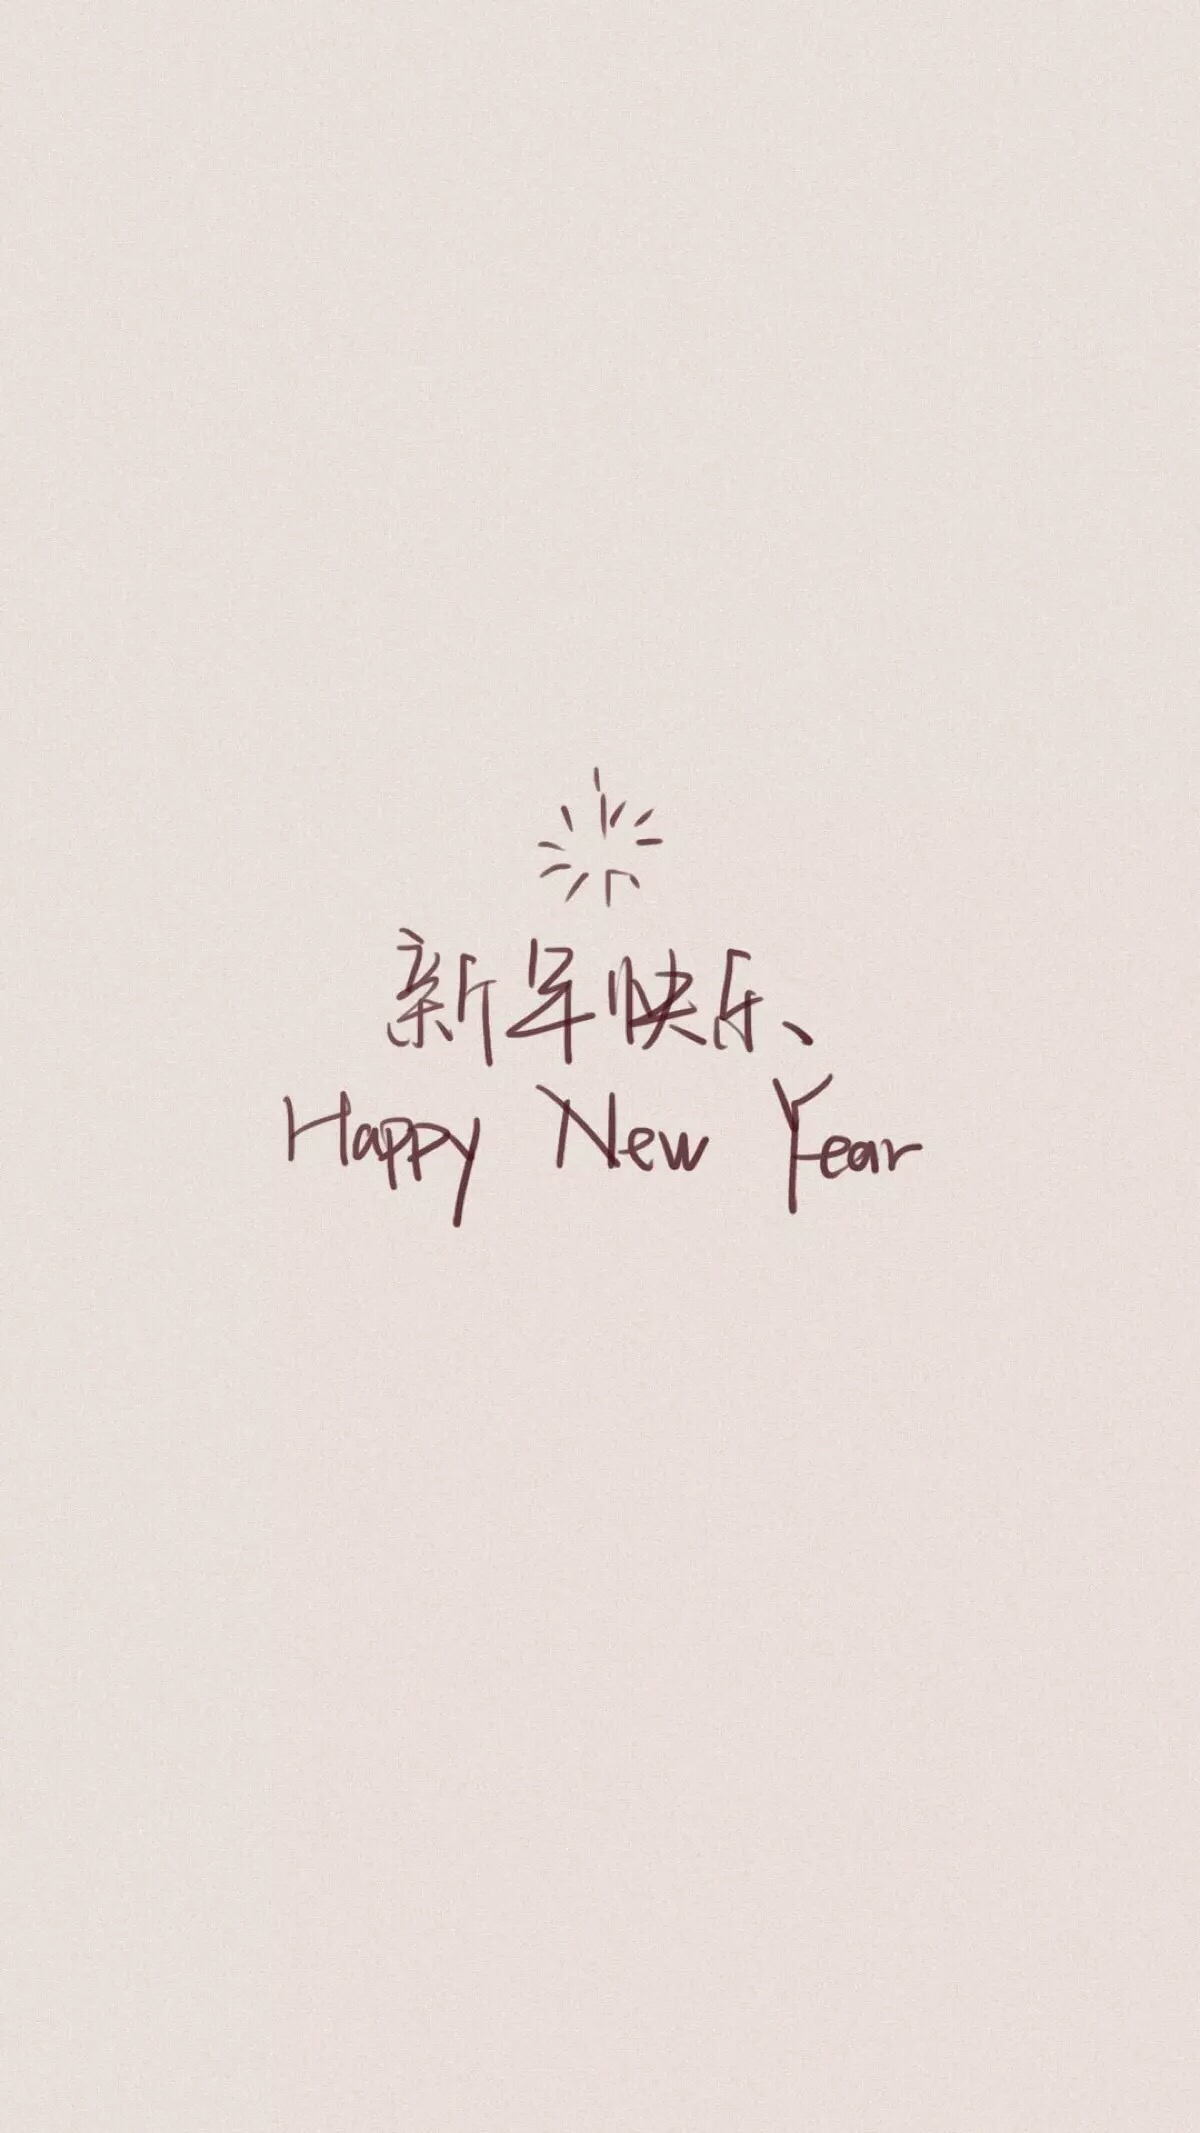 新年快乐、
Happy New Year